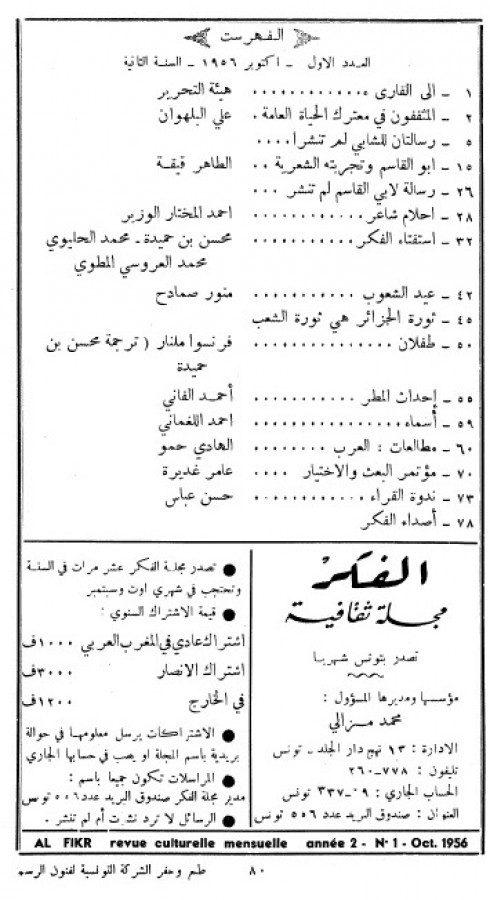 الفهرست
العدد الاول – اكتوبر ١٩٥٦ – السنة الثانية
١ – الى القارىء ............ هيئة التحرير
٢ – المثقفون في معترك الحياة العامة . علي البلهوان
٥ – رسالتان للشابي لم تنشرا ....
١٥ – ابو القاسم وتجربته الشعرية .. الطاهر قيقة
٢٦ – رسالة لابي القاسم لم تنشر ...
٢٨ – احلام شاعر ............ احمد المختار الوزير
٣٢ – استفتاء الفكر ........... محسن بن حميدة ـ محمد الحليوي
محمد العروسي المطوي
٤٢ – عيد الشعوب ............ منور صمادح
٤٥ – ثورة الجزائر هي ثورة الشعب
٥٠ – طفلان ............... فرنسوا ملنار ( ترجمة محسن بن
حميدة
٥٥ – إحداث المطر ............ أحمد الفاني
٥٩ – أسماء ............... احمد اللغماني
٦٠ – مطالعات : العرب ........ الهادي حمو
٧٠ – مؤتمر البعث والاختيار .... عامر غديرة
٧٣ – ندوة القراء ............ حسن عباس
٧٨ – أصداء الفكر
الفكر
مجلة ثقافية
تصدر بتونس شهريا
مؤسسها ومديرها المسؤول :
محمد مزالي
الادارة : ١٣ نهج دار الجلد – تونس
تليفون : ٧٧٨–٢٦٠
الحساب الجاري : ٠٩–٣٣٧ تونس
العنوان : صندوق البريد عدد ٥٥٦ تونس
● تصدر مجلة الفكر عشر مرات في السنة
وتحتجب في شهري اوت وسبتمبر
● قيمة الاشتراك السنوي :
اشتراك عادي في المغرب العربي ١٠٠٠ف
اشتراك الانصار ٣٠٠٠ف
في الخارج ١٢٠٠ف
● الاشتراكات يرسل معلومها في حوالة
بريدية باسم المجلة او يصب في حسابها الجاري
● المراسلات تكون جميعا باسم :
مدير مجلة الفكر صندوق البريد عدد ٥٥٦ تونس
● الرسائل لا ترد نشرت أم لم تنشر .
AL FIKR revue culturelle mensuelle année 2 - N° 1 - Oct. 1956
٨٠ طبع وحفر الشركة التونسية لفنون الرسم